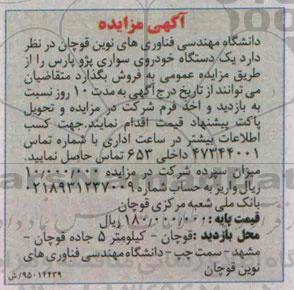 آگهی مزایده
دانشگاه مهندسی فناوری های نوین قوچان در نظر
دارد یک دستگاه خودروی سواری پژو پارس را از
طریق مزایده عمومی به فروش بگذارد متقاضیان
می توانند از تاریخ درج آگهی به مدت ۱۰ روز نسبت
به بازدید و اخذ فرم شرکت در مزایده و تحویل
پاکت پیشنهاد قیمت اقدام نمایند. جهت کسب
اطلاعات بیشتر در ساعت اداری با شماره تماس
۴۷۳۴۴۰۰۱ داخلی ۶۵۳ تماس حاصل نمایید.
میزان سپرده شرکت در مزایده ۱۰/۰۰۰/۰۰۰
ریال واریز به حساب شماره ۰۲۱۸۹۳۱۲۳۷۰۰۹
بانک ملی شعبه مرکزی قوچان
قیمت پایه : ۱۸۰/۰۰۰/۰۰۰ ریال
محل بازدید : قوچان - کیلومتر ۵ جاده قوچان -
مشهد - سمت چپ - دانشگاه مهندسی فناوری های
نوین قوچان
۹۵۰۱۴۴۳۹/ش